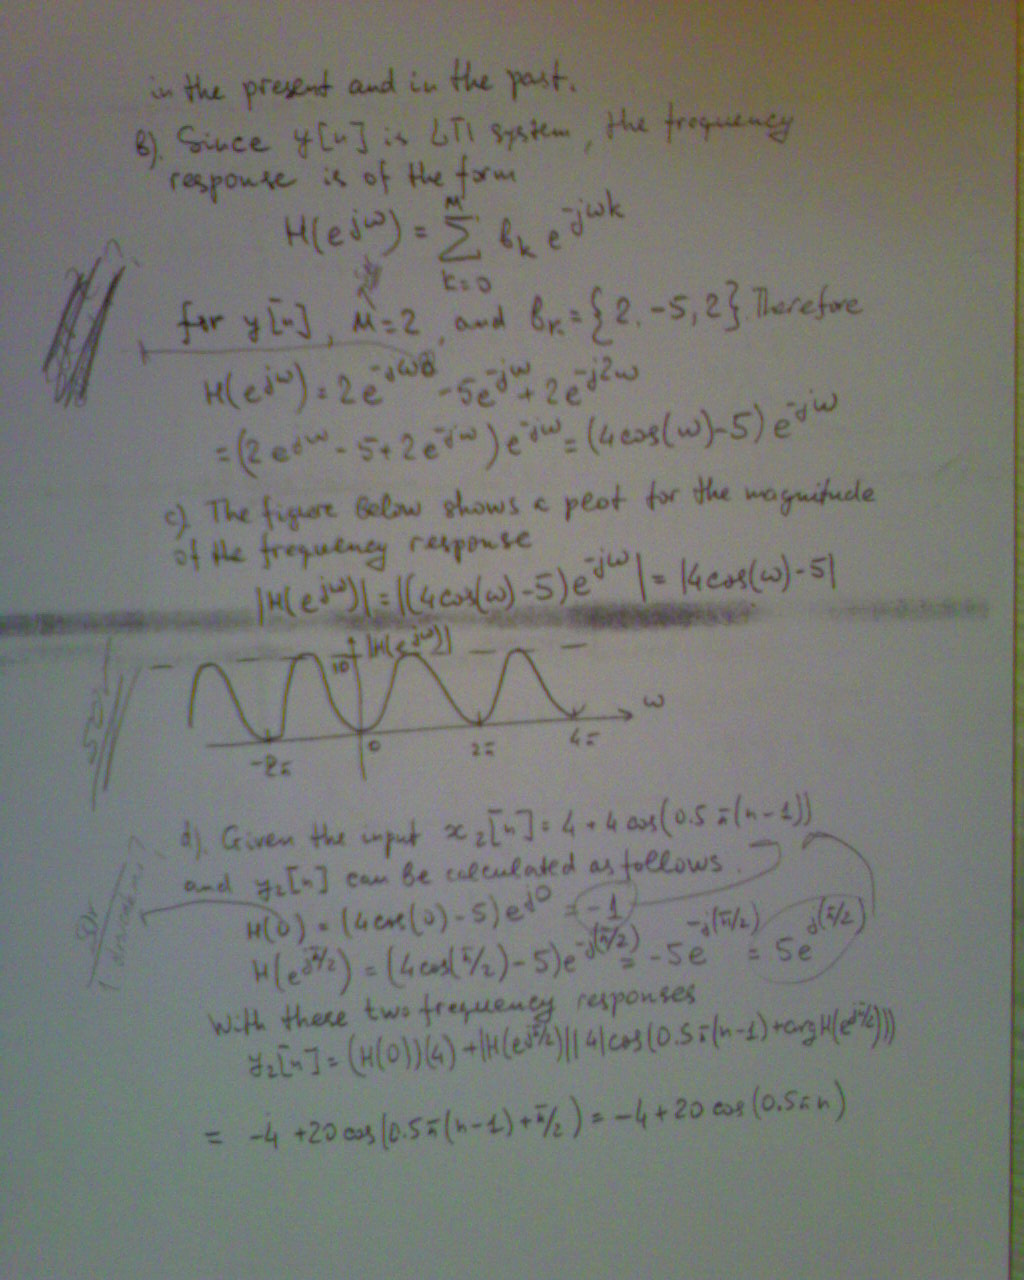 in the present and in the past.
b). Since y[n] is LTI system, the frequency
response is of the form
H(e^{jω}) = Σ_{k=0}^{M} b_k e^{-jωk}
for y[n], M=2, and b_k = {2, -5, 2}. Therefore
H(e^{jω}) = 2e^{-jω0} - 5e^{-jω} + 2e^{-j2ω}
= (2e^{jω} - 5 + 2e^{-jω}) e^{-jω} = (4cos(ω) - 5) e^{-jω}
c). The figure below shows a plot for the magnitude
of the frequency response
|H(e^{jω})| = |(4cos(ω) - 5)e^{-jω}| = |4cos(ω) - 5|
10 |H(e^{jω})|
ω
-2π 0 2π 4π
d). Given the input x₂[n] = 4 + 4 cos(0.5π(n-1))
and y₂[n] can be calculated as follows.
H(0) = (4cos(0) - 5) e^{j0} = -1
H(e^{jπ/2}) = (4cos(π/2) - 5)e^{-j(π/2)} = -5e^{-j(π/2)} = 5e^{j(π/2)}
With these two frequency responses
y₂[n] = (H(0))(4) + |H(e^{jπ/2})||4|cos(0.5π(n-1) + arg H(e^{jπ/2})))
= -4 + 20 cos(0.5π(n-1) + π/2) = -4 + 20 cos(0.5πn)